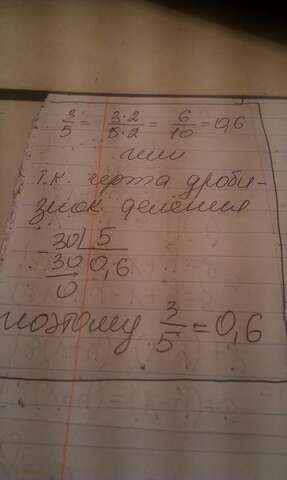 3/5 = 3·2/5·2 = 6/10 = 0,6
или
т.к. черта дроби-
знак деления
30 | 5
- 30 0,6
0
поэтому 3/5 = 0,6